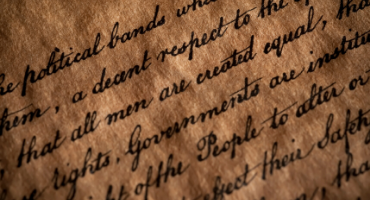 he political bands wh
them, a decent respect to the o
, that all men are created equal, tha
e rights, Governments are institu
ght of the People to alter or
effect their Safety
, than